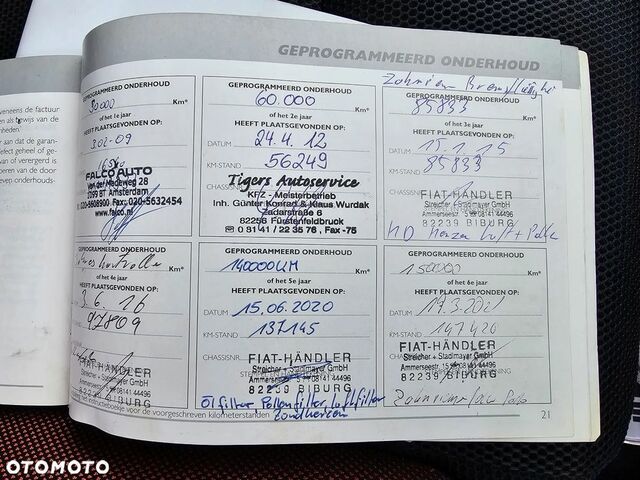 GEPROGRAMMEERD ONDERHOUD
veneens de factuur
en als bewijs van de
ar aan dat de garan-
fect geheel of ge-
of verergerd is
eren van de door
onderhouds-
GEPROGRAMMEERD ONDERHOUD
30000 Km*
of het 1e jaar
HEEFT PLAATSGEVONDEN OP:
3.02-09
FALCO AUTO
Van der Madeweg 28
BT Amsterdam
020-5608900 Fax: 020-5632454
www.falco.nl
GEPROGRAMMEERD ONDERHOUD
60.000 Km*
of het 2e jaar
HEEFT PLAATSGEVONDEN OP:
DATUM 24.4.12
KM-STAND 56249
CHASSISNR.
Tigers Autoservice
KFZ - Meisterbetrieb
Inh. Günter Konrad & Klaus Wurdak
Zadarstraße 6
82256 Fürstenfeldbruck
☎ 0 81 41 / 22 35 76, Fax -75
GEPROGRAMMEERD ONDERHOUD
85833 Km*
of het 3e jaar
HEEFT PLAATSGEVONDEN OP:
DATUM 15.1.15
KM-STAND 85833
CHASSISNR.
FIAT-HÄNDLER
Streicher + Stadlmayer GmbH
Ammerseestr. 5 ☎ 08141 44496
82239 BIBURG
GEPROGRAMMEERD ONDERHOUD
Km*
of het 4e jaar
HEEFT PLAATSGEVONDEN OP:
3.6.16
97809
FIAT-HÄNDLER
Streicher + Stadlmayer GmbH
Ammerseestr. 5 ☎ 08141 44496
82239 BIBURG
GEPROGRAMMEERD ONDERHOUD
140000KM Km*
of het 5e jaar
HEEFT PLAATSGEVONDEN OP:
DATUM 15.06.2020
KM-STAND 137145
CHASSISNR.
FIAT-HÄNDLER
Streicher + Stadlmayer GmbH
Ammerseestr. 5 ☎ 08141 44496
82239 BIBURG
Ölfilter Pollenfilter, Luftfilter
Zündkerzen
GEPROGRAMMEERD ONDERHOUD
150000 Km*
of het 6e jaar
HEEFT PLAATSGEVONDEN OP:
DATUM
KM-STAND 147420
CHASSISNR.
FIAT-HÄNDLER
Streicher + Stadlmayer GmbH
Ammerseestr. 5 ☎ 08141 44496
82239 BIBURG
het instructieboekje voor de voorgeschreven kilometerstanden
21
OTOMOTO